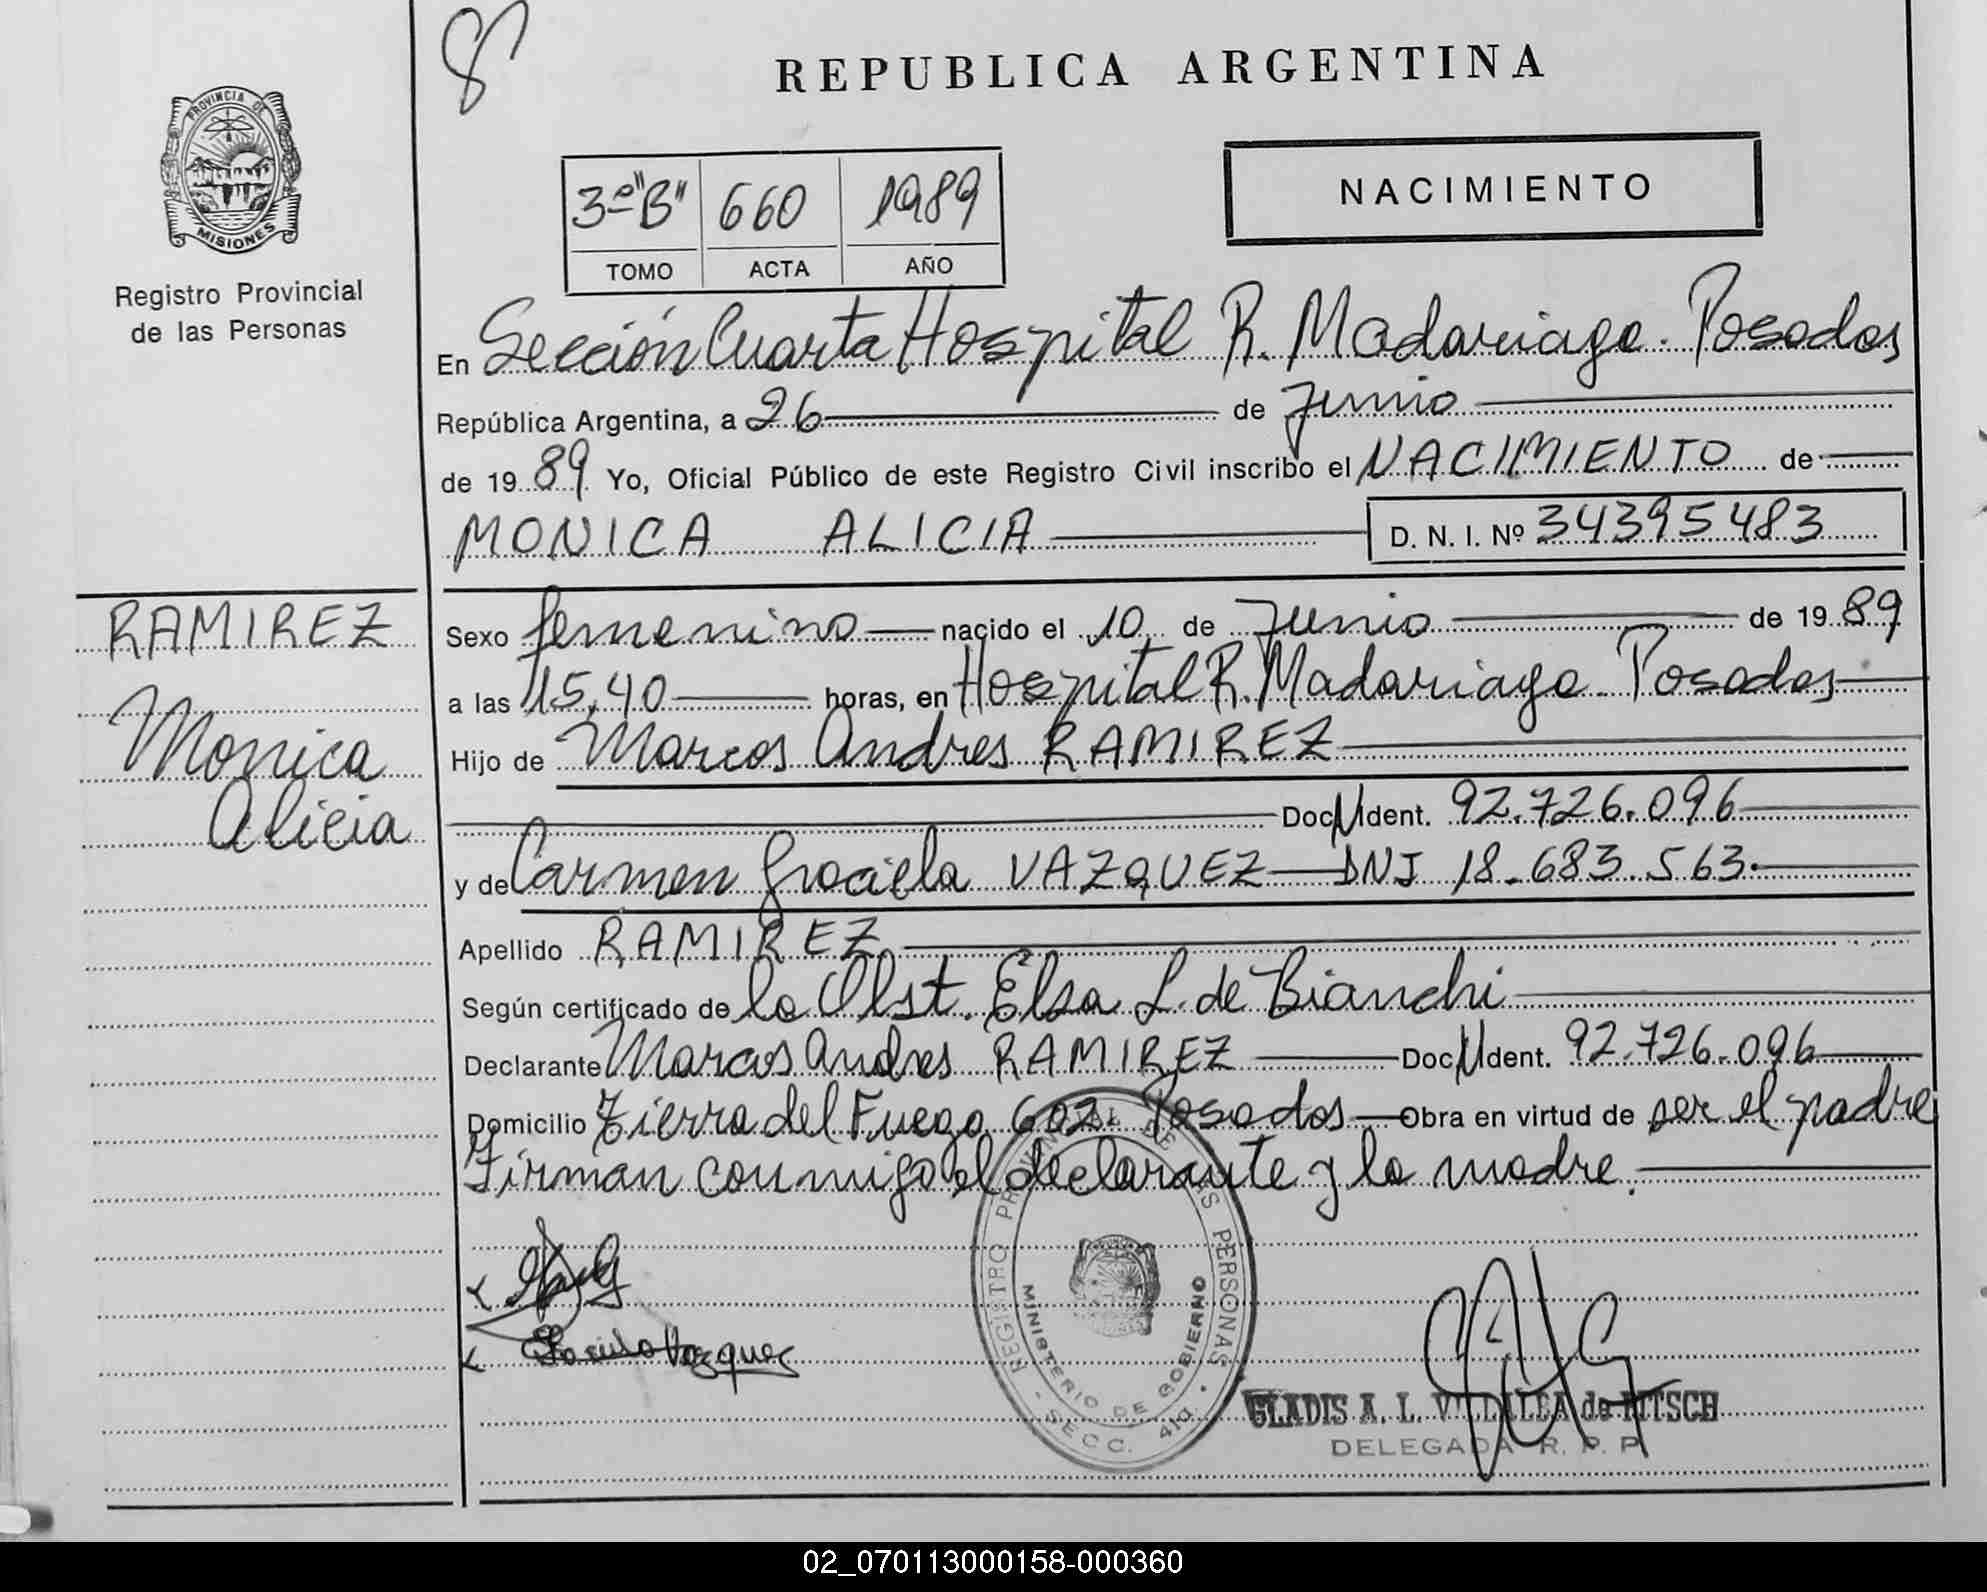 8
REPUBLICA ARGENTINA
PROVINCIA DE
MISIONES
Registro Provincial
de las Personas
3º "B" 660 1989
TOMO ACTA AÑO
NACIMIENTO
En Sección Cuarta Hospital R. Madariaga. Posadas
República Argentina, a 26 de Junio
de 1989 Yo, Oficial Público de este Registro Civil inscribo el NACIMIENTO de
MONICA ALICIA D. N. I. Nº 34395483
RAMIREZ
Monica
Alicia
Sexo femenino nacido el 10 de Junio de 1989
a las 15,40 horas, en Hospital R. Madariaga Posadas
Hijo de Marcos Andres RAMIREZ
Doc. Ident. 92.726.096
y de Carmen Graciela VAZQUEZ DNI 18.683.563.
Apellido RAMIREZ
Según certificado de la Obst. Elsa L. de Bianchi
Declarante Marcos Andres RAMIREZ Doc. Ident. 92.726.096
Domicilio Tierra del Fuego 602 Posadas Obra en virtud de ser el padre
Firman conmigo el declarante y la madre.
REGISTRO PROVINCIAL DE LAS PERSONAS
MINISTERIO DE GOBIERNO
SECC. 4ta.
Vazquez
GLADIS A. L. VILLALBA de
DELEGADA R. P. P.
02_070113000158-000360